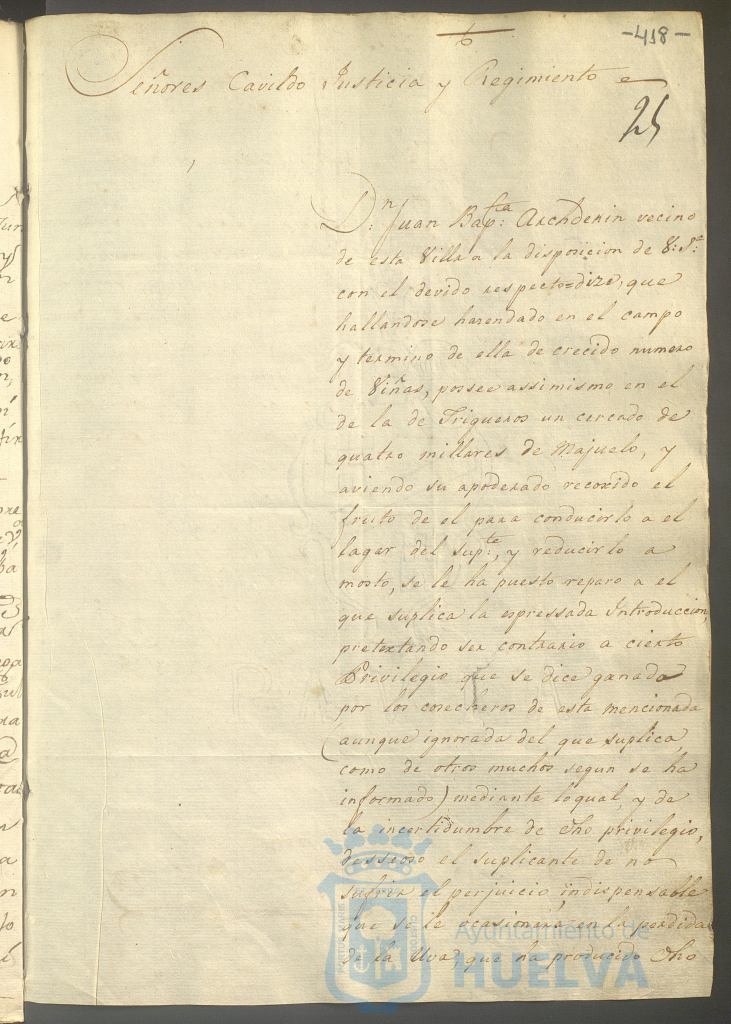 -418-
Señores Cavildo Justicia y Regimiento
25
D.n Juan Bap.ta Archdekin vecino
de esta Villa a la disposicion de V.S.a
con el devido respecto=dize, que
hallandose hasendado en el campo
y termino de ella de crecido numero
de Viñas, posee assimismo en el
de la de Trigueros un cercado de
quatro millares de Majuelo, y
aviendo su apoderado recoxido el
fruto de el para conducirlo a el
lagar del sup.te, y reducirlo a
mosto, se le ha puesto reparo a el
que suplica la espressada Introduccion,
pretextando ser contrario a cierto
Privilegio que se dice ganado
por los cosecheros de esta mencionada
(aunque ignorada del que suplica,
como de otros muchos segun se ha
informado) mediante lo qual, y de
la incertidumbre de dho privilegio,
desseoso el suplicante de no
sufrir el perjuicio indispensable
que se le ocasionara en la perdida
de la Uva, que ha producido dho
Ayuntamiento de
HUELVA